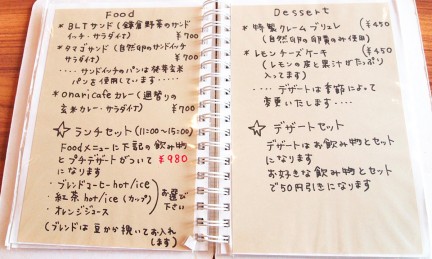 Food
* BLTサンド(鎌倉野菜のサンド
イッチ・サラダ付) ¥700
* タマゴサンド(自然卵のサンドイッチ
サラダ付) ¥700
‥‥サンドイッチのパンは発芽玄米
パンを使用しています‥‥‥
* onari cafe カレー(週替りの
玄米カレー・サラダ付) ¥700
☆ ランチセット (11:00~15:00)
Foodメニューに下記の飲み物
とプチデザートがついて ¥980
になります
・ブレンドコーヒーhot/ice
・紅茶 hot/ice (カップ)
・オレンジジュース
お選び
下さい
(ブレンドは豆から挽いてお入れ
します)
Dessert
* 特製クレームブリュレ (¥450
(自然卵の卵黄のみ使用)
* レモンチーズケーキ (¥450
(レモンの皮と果汁がたっぷり
入って)
‥‥デザートは季節によって
変更いたします‥‥
☆ デザートセット
デザートはお飲み物とセット
になります
お好きな飲み物とセット
で50円引きになります